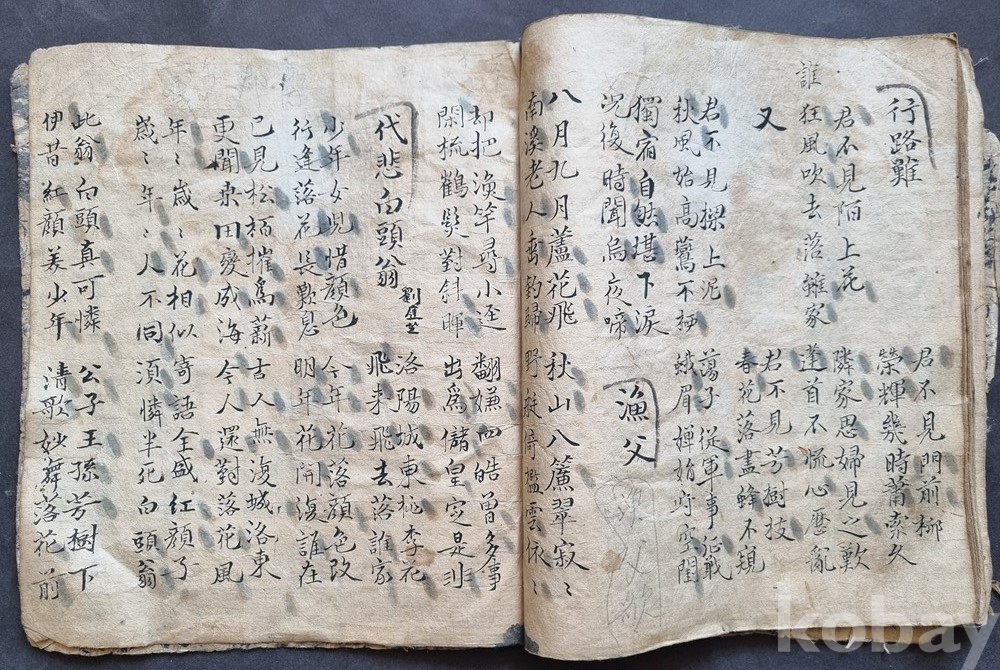 行路難
君不見門前柳
榮輝幾時蕭索久
君不見陌上花
狂風吹去落雜家
誰
隣家思婦見之歎
蓬首不梳心歷亂
又
君不見芳樹枝
春花落盡蜂不窺
君不見樑上泥
秋風始高鷰不栖
蕩子從軍事征戰
蛾眉嬋娟守空閨
獨宿自然堪下淚
況復時聞烏夜啼
漁父
八月九月蘆花飛
南溪老人垂釣歸
秋山八簾翠寂〻
野艇倚檻雲依〻
却把漁竿尋小逕
閑梳鶴髮對斜暉
翻嫌四皓曾多事
出爲儲皇定是非
代悲白頭翁
劉庭芝
洛陽城東桃李花
飛来飛去落誰家
少年女兒惜顔色
行逢落花長歎息
今年花落顔色改
明年花開復誰在
已見松栢摧爲薪
更聞桒田變成海
古人無復城洛東
今人還對落花風
年〻歲〻花相似
歲〻年〻人不同
寄語全盛紅顔子
須憐半死白頭翁
此翁白頭真可憐
伊昔紅顔美少年
公子王孫芳樹下
清歌妙舞落花前
kobay